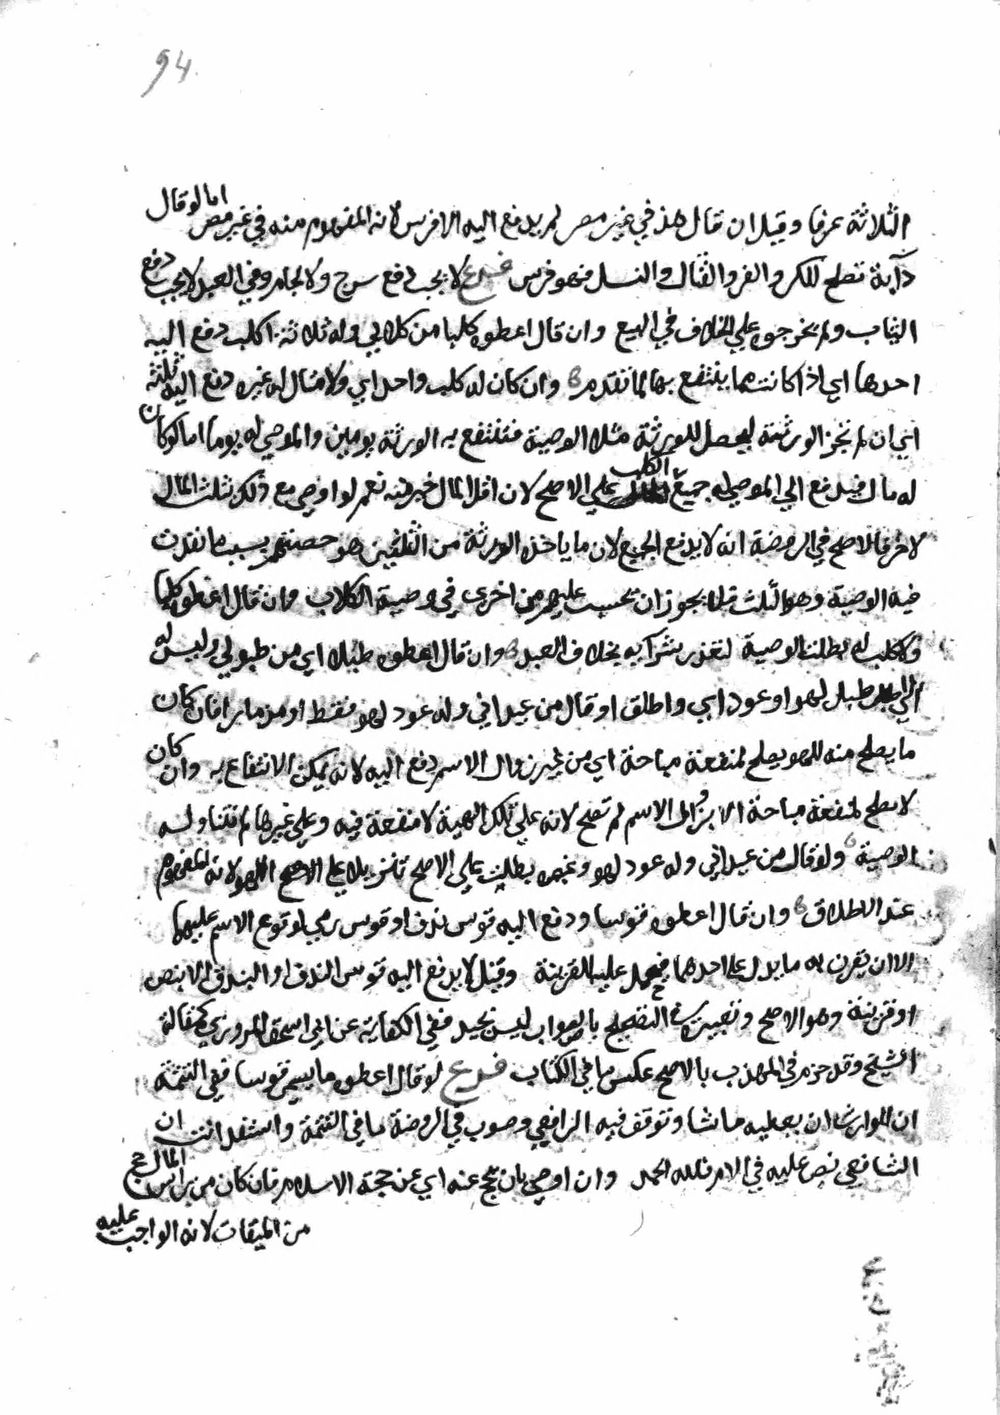 94
الثلاثة عرفا وقيل ان قال هذا في غير مصر لم يدفع اليه الا فرس لانه المفهوم منه في غير مصر اما لو قال
دابة تصلح للكر والفر والقتال والنسل فهو فرس فرع لا يجب دفع سرج ولا لجام وفي العبد لا يجب دفع
الثياب ولم يخرجوه علي الخلاف في البيع وان قال اعطوه كلبا من كلابي وله ثلاثة اكلب دفع اليه
احدها اي اذا كانت مما ينتفع بها لما تقدم وان كان له كلب واحد اي ولا مال له غيره دفع اليه ثلثه
اي ان لم تجز الورثة ليحصل للورثة مثلا الوصية فينتفع به الورثة يومين والموصي له يوما اما لو كان
له مال فيدفع الي الموصي له جميع الكلب علي الاصح لان اقل المال خير منه نعم لو اوصي مع ذلك بثلث المال
لاخر فالاصح في الروضة انه لا يدفع الجميع لان ما ياخذه الورثة من الثلثين هو حصتهم بسبب ما نفذت
فيه الوصية وهو الثلث فلا يجوز ان يحسب عليهم مرة اخرى في وصية الكلاب وان قال اعطوه كلبا
ولا كلب له بطلت الوصية لتعذر شرآيه بخلاف العبد وان قال اعطوه طبلا اي من طبولي وليس له
الا طبل لهو او عود اي واطلق او قال من عيداني وله عود لهو فقط او مزمار فان كان
ما يصلح منه للهو يصلح لمنفعة مباحة اي من غير زوال الاسم دفع اليه لانه يمكن الانتفاع به وان كان
لا يصلح لمنفعة مباحة الا بزوال الاسم لم تصح لانه علي تلك الهيئة لا منفعة فيه وعلي غيرها لم تتناوله
الوصية ولو قال من عيداني وله عود لهو وغيره بطلت علي الاصح تنزيلا علي اللهو لانه المفهوم
عند الاطلاق وان قال اعطوه قوسا دفع اليه قوس ندف او قوس رمي لوقوع الاسم عليهما
الا ان يقرن به ما يدل علي احدهما فيحمل عليه للقرينة وقيل لا يدفع اليه قوس الندف او البندق الا بنص
او قرينة وهو الاصح وتعبيره في التصحيح بالصواب ليس بجيد ففي الكفاية عن ابي اسحق المروزي كمقالة
الشيخ وقد جزم في المهذب بالاصح عكس ما في الكتاب فرع لو قال اعطوه ما يسمي قوسا ففي التتمة
ان للوارث ان يعطيه ما شا وتوقف فيه الرافعي وصوب في الروضة ما في التتمة واستفدانت ان
الشافعي نص عليه في الام فلله الحمد وان اوصي بان يحج عنه اي عن حجة الاسلام فان كان من راس المال حج
من الميقات لانه الواجب عليه